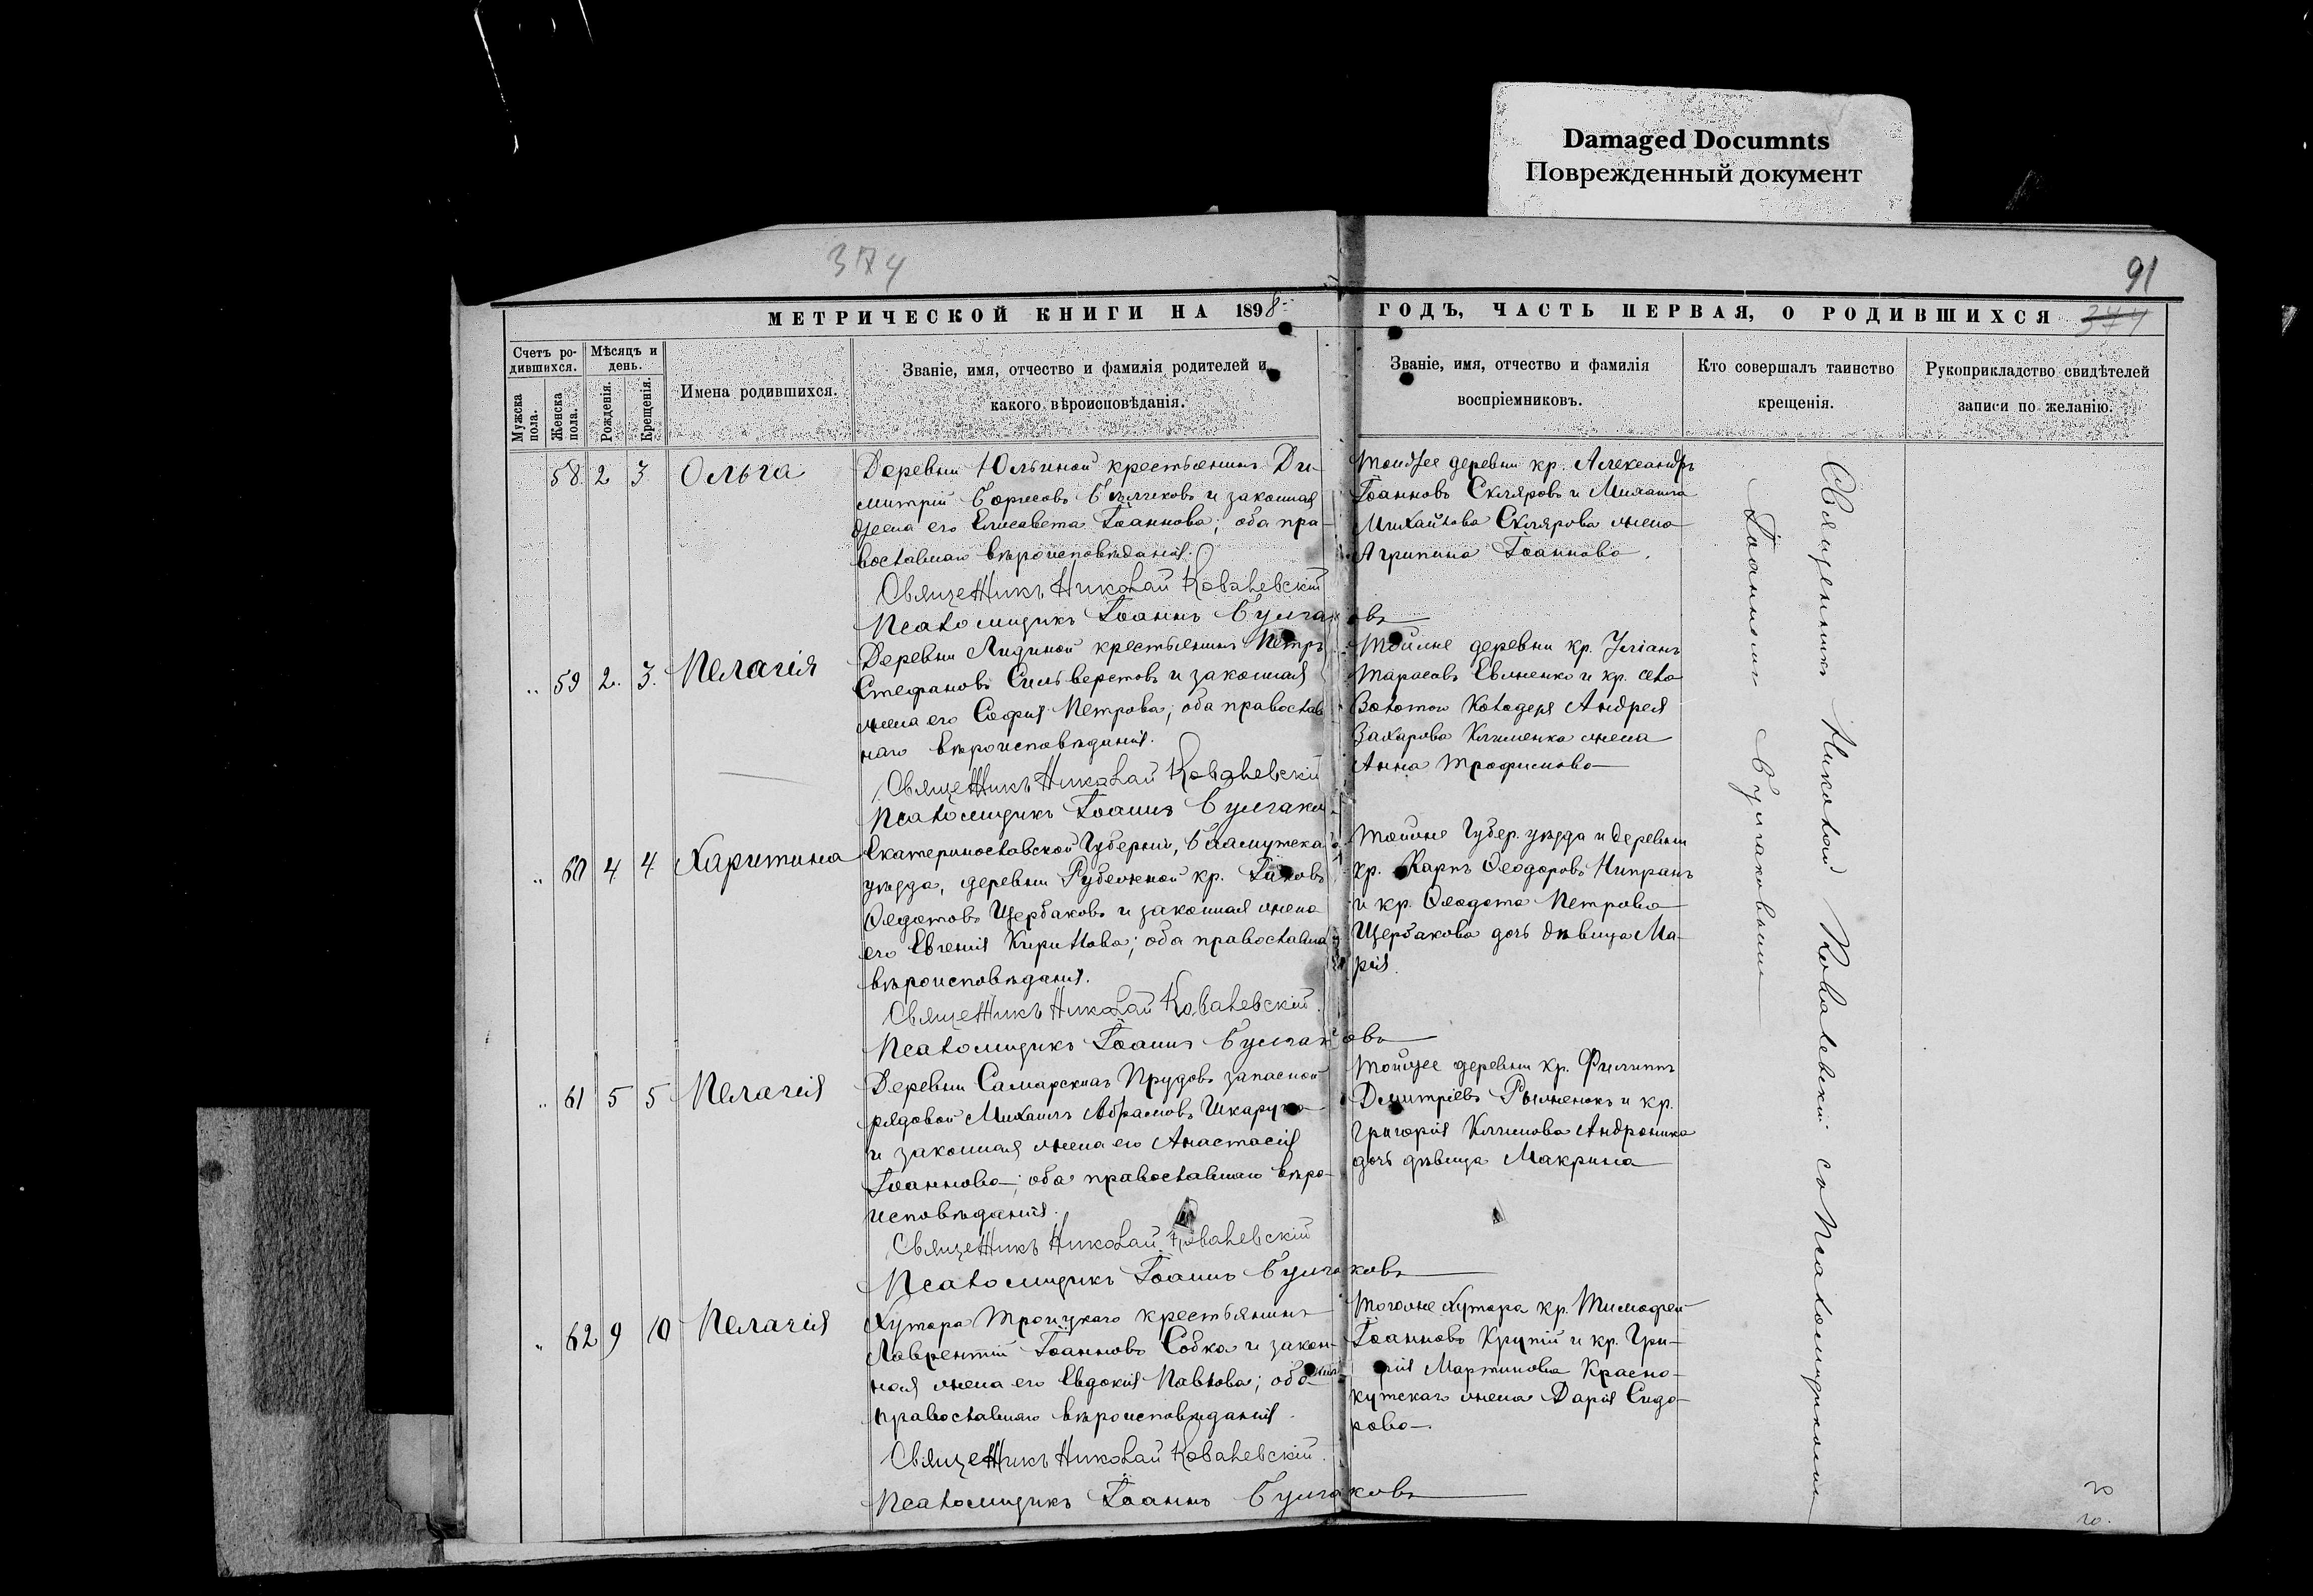 Damaged Documnts
Поврежденный документ
374
91
МЕТРИЧЕСКОЙ КНИГИ НА 1898
ГОДЪ, ЧАСТЬ ПЕРВАЯ, О РОДИВШИХСЯ
374
Счетъ ро-
дившихся.
Мѣсяцъ и
день.
Мужска
пола.
Женска
пола.
Рожденія.
Крещенія.
Имена родившихся.
Званіе, имя, отчество и фамилія родителей и
какого вѣроисповѣданія.
Званіе, имя, отчество и фамилія
воспріемниковъ.
Кто совершалъ таинство
крещенія.
Рукоприкладство свидѣтелей
записи по желанію.
58. 2 3 Ольга
Деревни Юльиной крестьянинъ Ди-
митрій Борисовъ и законная
жена его Елисавета Іоаннова; оба пра-
вославнаго вѣроисповѣданія.
Священникъ Николай Ковалевскій
Псаломщикъ Іоаннъ Булгаковъ
Тойже деревни кр. Александръ
Іоанновъ Скляровъ и Михаила
Михайлова Склярова жена
Агрипина Іоаннова.
59 2. 3. Пелагія
Деревни Лидиной крестьянинъ Петръ
Стефановъ Сильверстовъ и законная
жена его Софія Петрова; оба православ
наго вѣроисповѣданія.
Священникъ Николай Ковалевскій
Псаломщикъ Іоаннъ Булгаков
Тойже деревни кр. Уліанъ
Тарасовъ Евлненко и кр. села
Золотои Колодезя Андрея
Захарова Клименка жена
Анна Трофимова
60 4 4 Харитина
Екатеринославской Губерніи, Бахмутска
уѣзда, деревни Рубежной кр. Іаковъ
Ѳедотовъ Щербаковъ и законная жена
его Евгенія Кирилова; оба православна
вѣроисповѣданія.
Священникъ Николай Ковалевскій.
Псаломщикъ Іоаннъ Булгаковъ
Тойже Губер. уѣзда и деревни
кр. Карпъ Ѳеодоровъ
и кр. Ѳеодота Петрова
Щербакова дочь дѣвица Ма-
рія.
61 5 5 Пелагія
Деревни Самарскихъ Прудовъ запасной
рядовой Михаилъ Абрамовъ
и законная жена его Анастасія
Іоаннова; оба православнаго вѣро-
исповѣданія.
Священникъ Николай Ковалевскій
Псаломщикъ Іоаннъ Булгаковъ
Тойже деревни кр. Филиппъ
Димитріевъ и кр.
Григорія Климова Андроника
дочь дѣвица Макрина
62 9 10 Пелагія
Хутора Троицкаго крестьянинъ
Лаврентій Іоанновъ Собка и закон-
ная жена его Евдокія Павлова; оба
православнаго вѣроисповѣданія.
Священникъ Николай Ковалевскій.
Псаломщикъ Іоаннъ Булгаковъ
Тогоже хутора кр. Тимофей
Іоанновъ Крутій и кр. Гри-
рія Мартинова Красно-
кутскаго жена Дарія Сидо-
рова.
Священникъ Николай Ковалевскій со Псаломщикомъ
Іоанномъ Булгаковымъ
20
20.